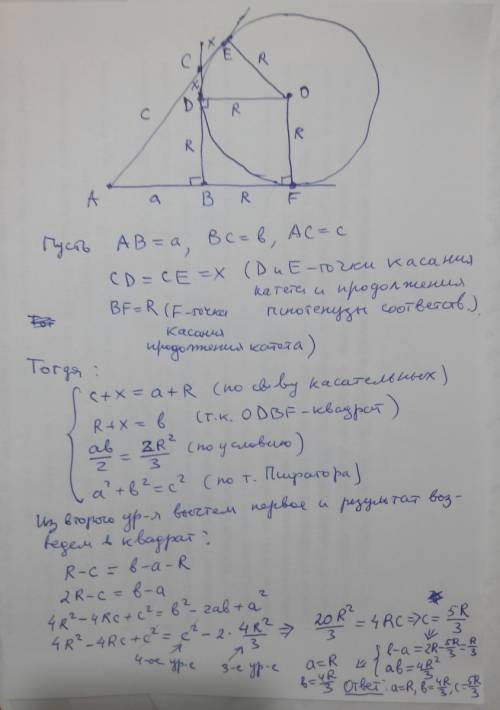 C
x
E
R
O
x
C
D
R
R
R
A
a
B
R
F
Пусть AB = a, BC = в, AC = c
CD = CE = x (D и E - точки касания
катета и продолжения
гипотенузы соответств.)
BF = R (F - точка
касания
продолжения катета)
Тогда:
c + x = a + R (по св-ву касательных)
R + x = в (т.к. ODBF - квадрат)
ab/2 = 2R²/3 (по условию)
a² + в² = c² (по т. Пифагора)
Из второго ур-я вычтем первое и результат воз-
ведем в квадрат:
R - c = в - a - R
2R - c = в - a
4R² - 4Rc + c² = в² - 2ab + a²
4R² - 4Rc + c² = c² - 2 · 4R²/3 ⇒ 20R²/3 = 4Rc ⇒ c = 5R/3
4-ое ур-е 3-е ур-е
в - a = 2R - 5R/3 = R/3
ab = 4R²/3
a = R
в = 4R/3
Ответ: a = R, в = 4R/3, c = 5R/3